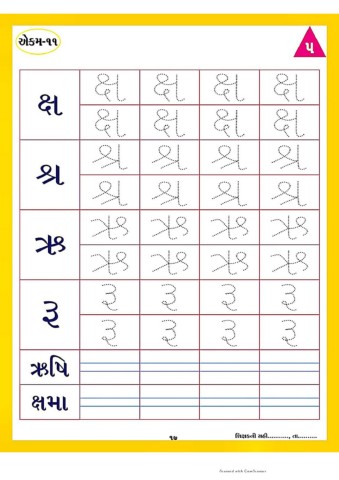 એકમ-૧૧
૫
ક્ષ ક્ષ ક્ષ ક્ષ ક્ષ
ક્ષ ક્ષ ક્ષ ક્ષ
શ્ર શ્ર શ્ર શ્ર શ્ર
શ્ર શ્ર શ્ર શ્ર
ઋ ઋ ઋ ઋ ઋ
ઋ ઋ ઋ ઋ
રૂ રૂ રૂ રૂ રૂ
રૂ રૂ રૂ રૂ
ઋષિ
ક્ષમા
૧૫ શિક્ષકની સહી.........., તા.........
Scanned with CamScanner